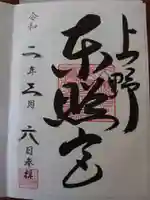 上野
東照宮
令和二年三月六日奉拝